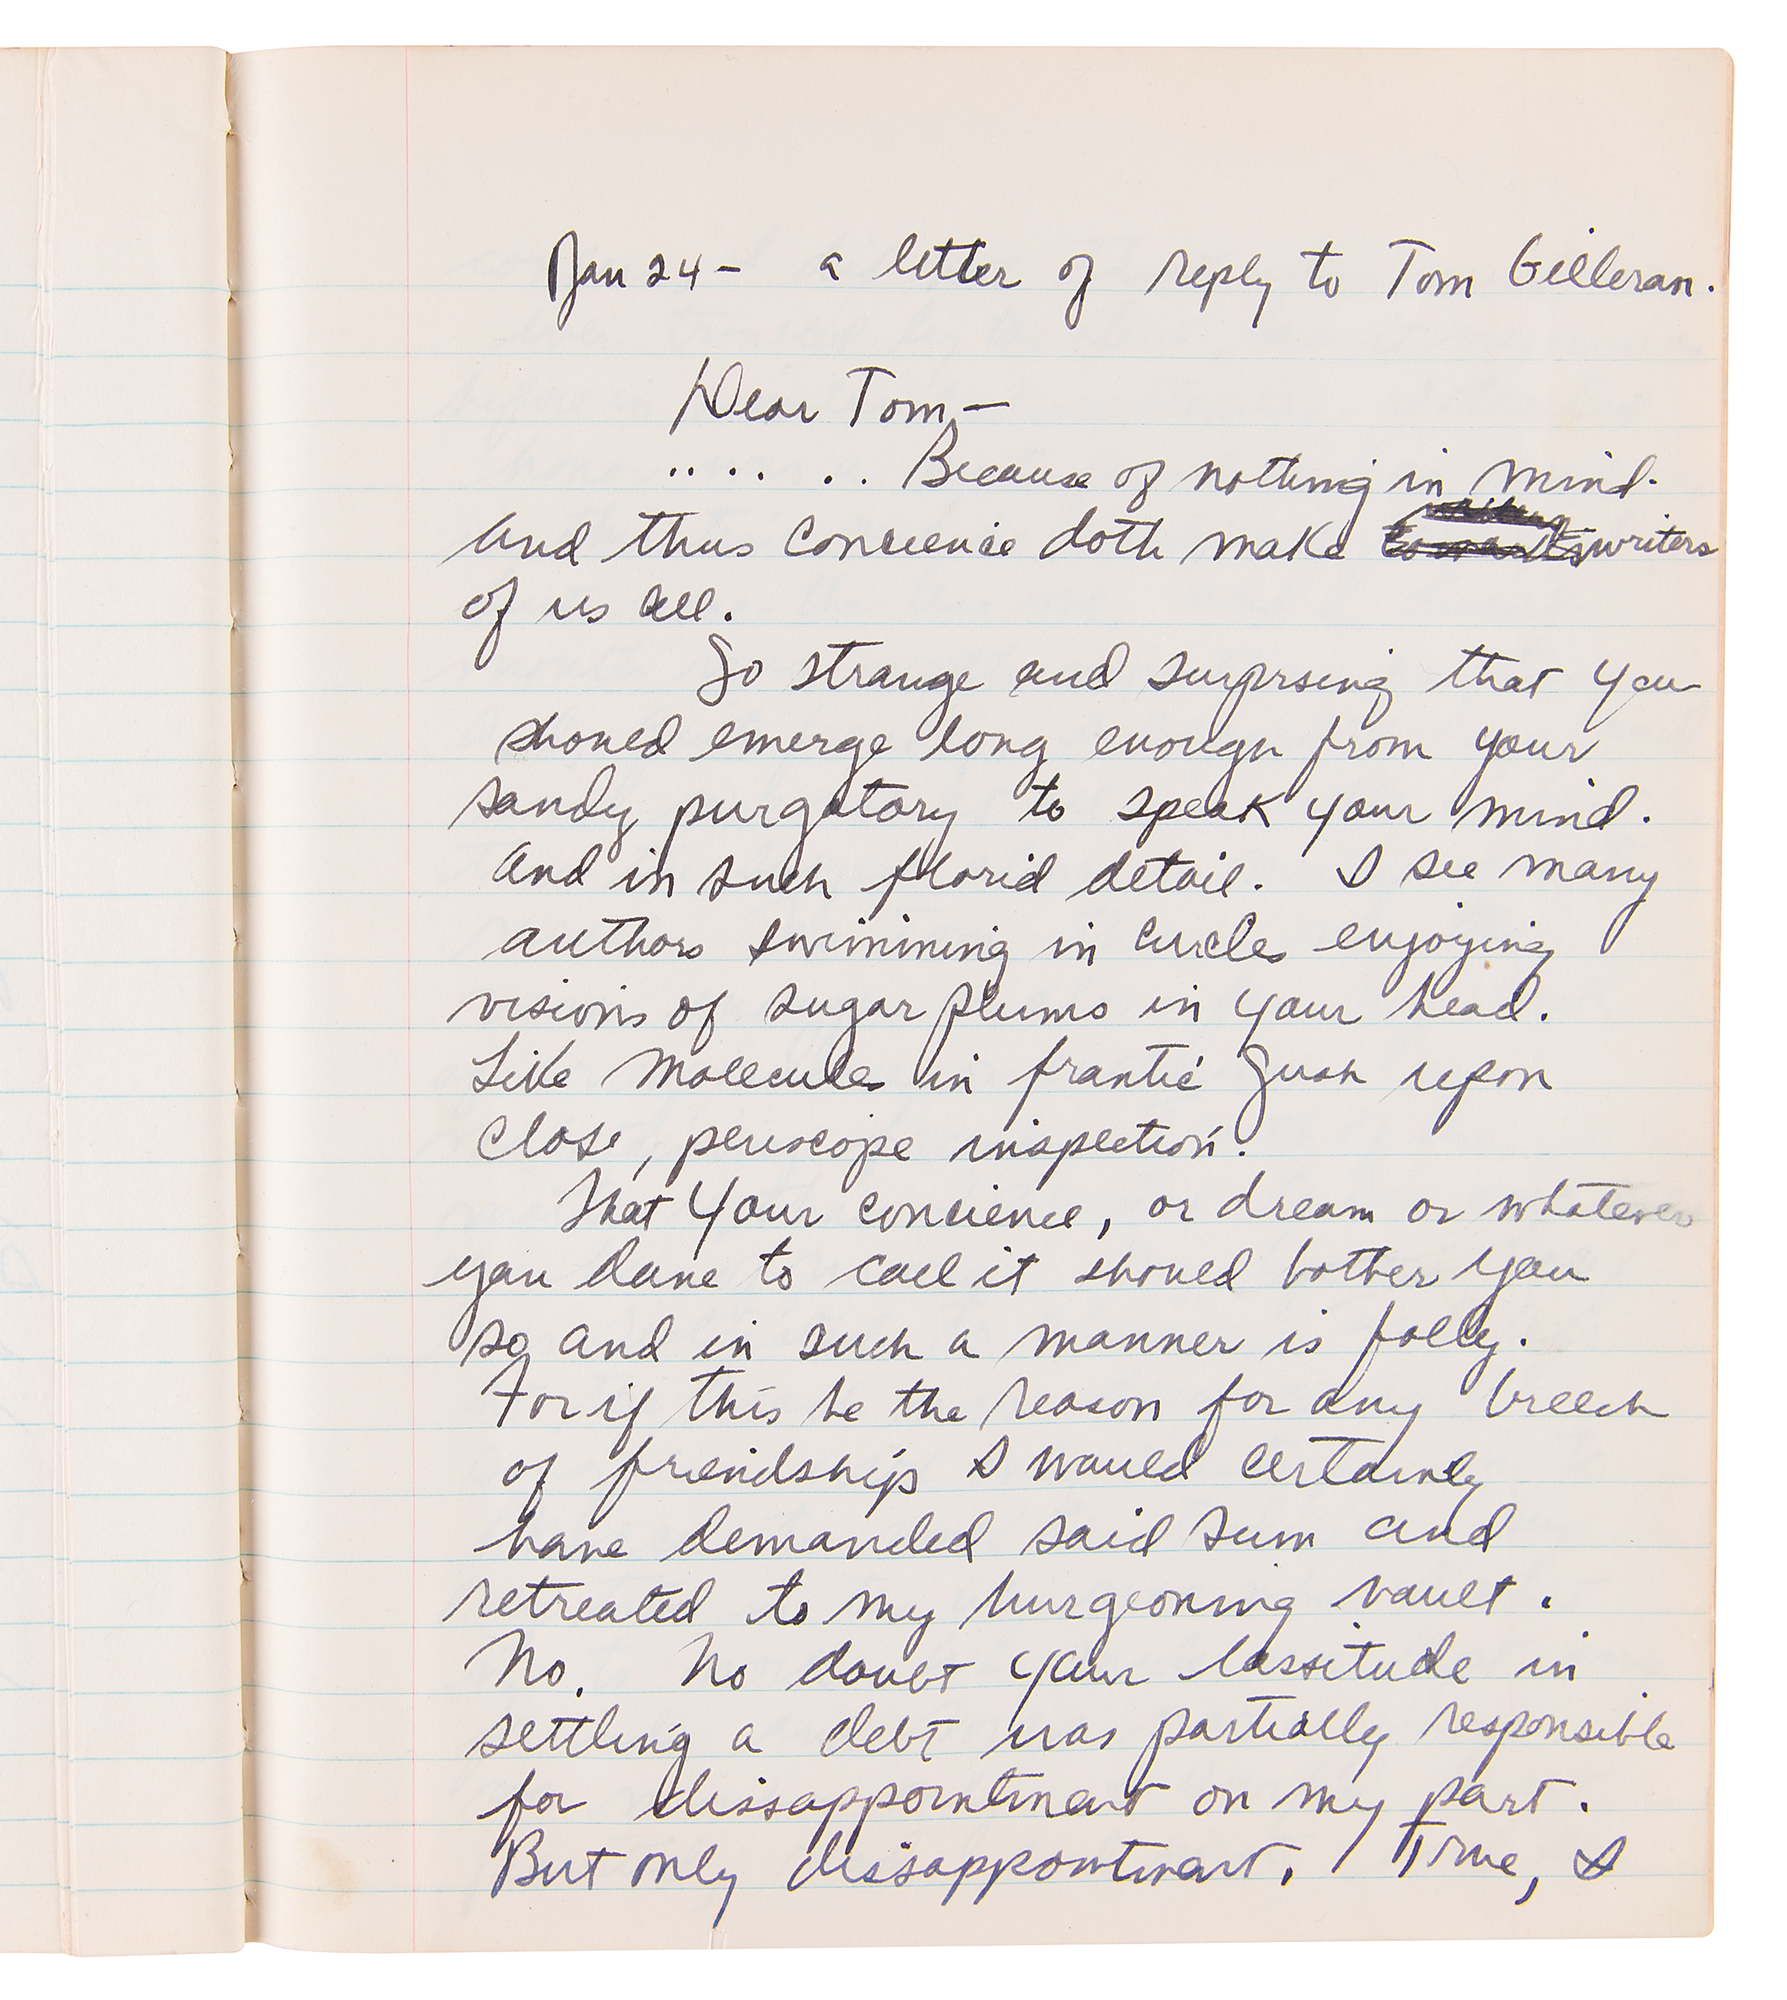 Jan 24 - a letter of reply to Tom Gilleran.
Dear Tom —
.. .. .. Because of nothing in mind.
and thus concience doth make cowards writers
of us all.
So strange and surprsing that you
should emerge long enough from your
sandy purgatory to speak your mind.
And in such florid detail. I see many
authors swimming in circles enjoying
visions of sugar plums in your head.
Like molecules in frantic gush upon
close, periscope inspection.
That your concience, or dream or whatever
you dane to call it should bother you
so and in such a manner is folly.
For if this be the reason for any breech
of friendship I would certainly
have demanded said sum and
retreated to my burgeoning vault.
No. No doubt your lassitude in
settling a debt was partially responsible
for dissappointment on my part.
But only dissappointment. True, I